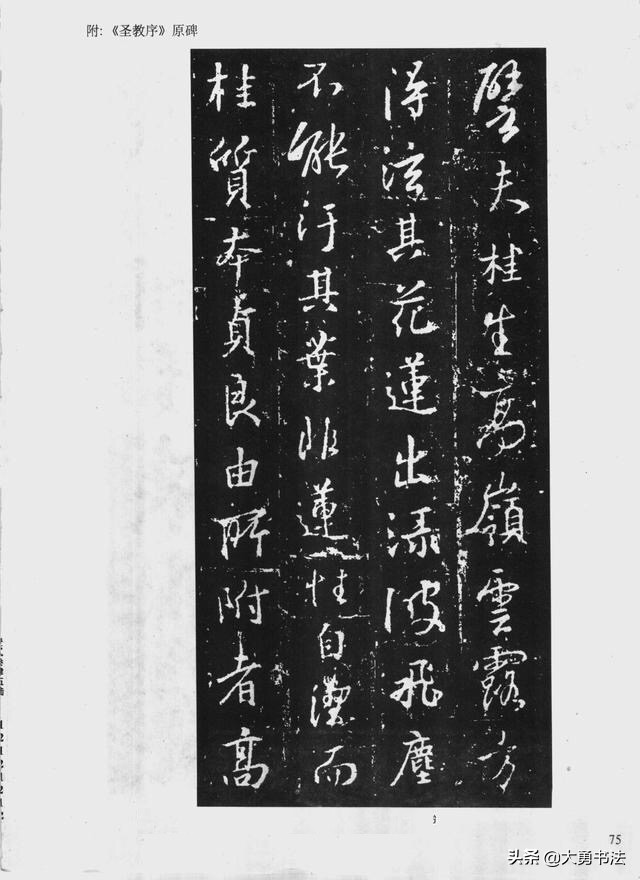 附:《圣教序》原碑
譬夫桂生高嶺雲露方
得泫其花蓮出淥波飛塵
不能汙其葉非蓮性自潔而
桂質本貞良由所附者高
75
头条 @大勇书法